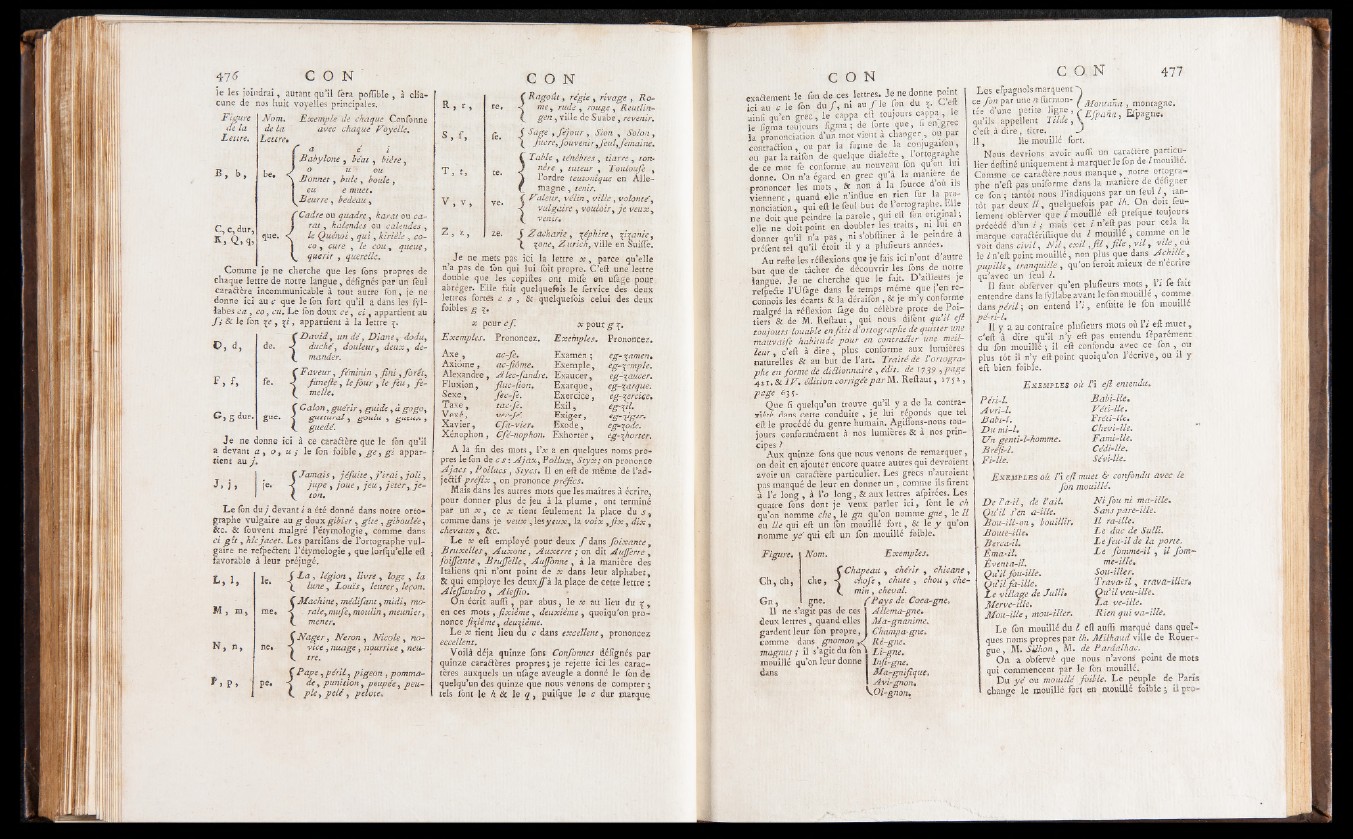 476 CON
ie les joindrai, autant qu'il sera possible, à cha-
cune de nos huit voyelles principales.
Figure de la Lettre. Nom. de la Lettre. Exemple de chaque Consonne avec chaque Voyelle.
a é i
Babylone, béat, bière,
o u ou
B, b, be. Bonnet, bule, boule,
eu e muet.
Beurre, bedeau,
C, c, dur, K, Q, q, que.
Cadre ou quadre, karat ou ca-
rat, kalendes ou calendes,
le Quénoi, qui, kirièle, co-
co, cure, le cou, queue,
querir, querelle.
Comme je ne cherche que les sons propres de
chaque lettre de notre langue, désignés par un seul
caractère incommunicable à tout autre son, je ne
donne ici au c que le son fort qu'il a dans les syl-
labes ca, co, cu. Le son doux ce, ci, appartient au
s; & le son ze, zi, appartient à la lettre z.
D, d, de.
David, un dé, Diane, dodu,
duché, douleur, deux, de-
mander.
F, f, fe.
Faveur, féminin, fini, forêt,
funeste, le four, le feu, fe-
melle.
G, g dur. gue.
Galon, guérir, guide, à gogo,
guttural, goulu, gueux,
guedé.
Je ne donne ici à ce caractère que le son qu'il
a devant a, o, u; le son foible, ge, gi appar-
tient au j.
J, j, je.
Jamais, jésuite, j'irai, joli,
jupe, joue, jeu, jeter, je-
ton.
Le son du j devant i a été donné dans notre orto-
graphe vulgaire au g doux gibier, gîte, giboulée,
&c. & souvent malgré l'étymologie, comme dans
ci gît, hîc jacet. Les partisans de l'ortographe vul-
gaire ne respectent l'étymologie, que lorsqu'elle est
favorable à leur préjugé.
L, l, le.
La, légion, livre, loge, la
lune, Louis, leurer, leçon.
M, m, me.
Machine, médisant, midi, mo-
rale, muse, moulin, meunier,
mener.
N, n, ne.
Nager, Neron, Nicole, no-
vice, nuage, nourrice, neu-
tre.
P, p, pe.
Pape, péril, pigeon, pomma-
de, punition, poupée, peu-
ple, pelé, pelote.
CON
R, r, re.
Ragoût, régie, rivage, Ro-
me, rude, rouge, Reutlin-
gen, ville de Suabe, revenir.
S, s, se.
Sage, séjour, Sion, Solon,
sucre, souvenir, seul, semaine.
T, t, te.
Table, ténèbres, tiarre, ton-
nère, tuteur, Toulouse,
l'ordre teutonique en Alle-
magne, tenir.
V, v, ve.
Valeur, vélin, ville, volonté,
vulgaire, vouloir, je veux,
venir.
Z, z, ze.
Zacharie, zéphire, zizanie,
zone, Zurich, ville en Suisse.
Je ne mets pas ici la lettre x, parce qu'elle
n'a pas de son qui lui soit propre. C'est une lettre
double que les copistes ont mise en usage pour
abréger. Elle fait quelquefois le service des deux
lettres fortes c s, & quelquefois celui des deux
foibles g z.
x pour cs. x pour g z.
Exemples. Prononcez. Exemples. Prononcez.
Axe, ac-se. Examen; eg-zamen.
Axiome, ac-siome. Exemple, eg-zemple.
Alexandre, Alec-sandre. Exaucer, eg-zaucer.
Fluxion, fluc-sion. Exarque, eg-zarque.
Sexe, sec-se. Exercice, eg-zercice.
Taxe, tac-se. Exil, eg-zil.
Vexé, vec-sé. Exiger, eg-ziger.
Xavier, Csa-vier. Exode, eg-zode.
Xénophon, Csé-nophon. Exhorter, eg-zhorter.
A la fin des mots, l'x a en quelques noms pro-
pres le son de cs: Ajax, Pollux, Styx; on prononce
Ajacs, Pollucs, Stycs. Il en est de même de l'ad-
jectif préfix, on prononce préfics.
Mais dans les autres mots que les maitres à écrire,
pour donner plus de jeu à la plume, ont terminé
par un x, ce x tient seulement la place du s,
comme dans je veux, les yeux, la voix, six, dix,
chevaux, &c.
Le x est employé pour deux s dans soixante,
Bruxelles, Auxone, Auxerre; on dit Ausserre,
soissante, Brusselle, Aussonne, à la manière des
Italiens qui n'ont point de x dans leur alphabet,
& qui employe les deux ss à la place de cette lettre:
Alessandro, Alessio.
On écrit aussi, par abus, le x au lieu du z,
en ces mots, sixième, deuxième, quoiqu'on pro-
nonce sizième, deuzième.
Le x tient lieu du c dans excellent, prononcez
eccellent.
Voilà déja quinze sons Consonnes désignés par
quinze caractères propres; je rejette ici les carac-
tères auxquels un usage aveugle a donné le son de
quelqu'un des quinze que nous venons de compter;
tels sont le k & le q, puisque le c dur marque
CON
exactement le son de ces lettres. Je ne donne point
ici au c le son du s, ni au s le son du z. C'est
ainsi qu'en grec, le cappa est toujours cappa,
le sigma toujours sigma; de sorte que, si en grec
la prononciation d'un mot vient à changer, ou par
contraction, ou par la figme de la conjugaison,
ou par la raison de quelque dialecte, l'ortographe
de ce mot se conforme au nouveau son qu'on lui
donne. On n'a égard en grec qu'à la manière de
prononcer les mots, & non à la source d'où ils
viennent, quand elle n'influe en rien sur la pro-
nonciation, qui est le seul but de l'ortographe. Elle
ne doit que peindre la parole, qui est son original;
elle ne doit point en doubler les traits, ni lui en
donner qu'il n'a pas, ni s'obstiner à le peindre à
présent tel qu'il étoit il y a plusieurs années.
Au reste les réflexions que je fais ici n'ont d'autre
but que de tâcher de découvrir les sons de notre
langue. Je ne cherche que le fait. D'ailleurs je
respecte l'Usage dans le temps même que j'en re-
connois les écarts & la déraison, & je m'y conforme
malgré la réflexion sage du célèbre prote de Poi-
tiers & de M. Restaut, qui nous disent qu'il est
toujours louable en fait d'ortographe de quitter une
mauvaise habitude pour en contracter une meil-
leur, c'est à dire, plus conforme aux lumières
naturelles & au but de l'art. Traité de l'ortogra-
phe en forme de dictionnaire, édit. de 1739, page
421. & IV. édition corrigée par M. Restaut, 1752,
page 635.
Que si quelqu'un trouve qu'il y a de la contra-
riété dans cette conduite, je lui réponds que tel
est le procédé du genre humain. Agissons-nous tou-
jours conformément à nos lumières & à nos prin-
cipes?
Aux quinze sons que nous venons de remarquer,
on doit en ajouter encore quatre autres qui devroient
avoir un caractère particulier. Les grecs n'auroient
pas manqué de leur en donner un, comme ils firent
à l'e long, à l'o long, & aux lettres aspirées. Les
quatre sons dont je veux parler ici, sont le ch
qu'on nomme che, le gn qu'on nomme gne, le ll
ou lle qui est un son mouillé fort, & le y qu'on
nomme ye qui est un son mouillé foible.
Figure. Nom. Exemples.
Ch, ch, che,
Chapeau, chérir, chicane,
chose, chute, chou, che-
min, cheval.
Gn, gne. Pays de Coca-gne.
Il ne s'agit pas de ces Allema-gne.
deux lettres, quand elles Ma-gnanime.
gardent leur son propre, Champa-gne.
comme dans gnomon, Ré-gne.
magnus; il s'agit du son Li-gne.
mouillé qu'on leur donne Insi-gne.
dans Ma-gnifique.
Avi-gnon.
Ol-gnon.
CON 477
Les espagnols marquent
ce son par une n surmon- Montaña, montagne.
tée d'une petite ligne, España, Espagne.
qu'ils appellent Tilde,
c'est à dire, titre.
ll, lle mouillé fort.
Nous devrions avoir aussi un caractère particu-
lier destiné uniquement à marquer le son de l mouillé.
Comme ce caractère nous manque, notre ortogra-
phe n'est pas uniforme dans la manière de désigner
ce son; tantôt nous l'indiquons par un seul l, tan-
tôt par deux ll, quelquefois par lh. On doit seu-
lement observer que l mouillé est presque toujours
précédé d'un i; mais cet i n'est pas pour cela la
marque caractéristique du l mouillé, comme on le
voit dans civil, Nil, exil, fil, file, vil, vile, où
le l n'est point mouillé, non plus que dans Achille,
pupille, tranquille, qu'on feroit mieux de n'écrire
qu'avec un seul l.
Il faut observer qu'en plusieurs mots, l'i se fait
entendre dans la syllabe avant le son mouillé, comme
dans péril; on entend l'i, ensuite le son mouillé
pé-ri-l.
Il y a au contraire plusieurs mots où l'i est muet,
c'est à dire qu'il n'y est pas entendu séparément
du son mouillé; il est confondu avec ce son, ou
plus tôt il n'y est point quoiqu'on l'écrive, ou il y
est bien foible.
EXEMPLES où l'i est entendu.
Péri-l. Babi-lle.
Avri-l. Véti-lle.
Babi-l. Fréti-lle.
Du mi-l. Chevi-lle.
Un genti-l-homme. Fami-lle.
Brési-l. Cédi-lle.
Fi-lle. Sévi-lle.
EXEMPLES où l'i est muet & confondu avec le
son mouillé.
De l'a-il, de l'ail. Ni fou ni ma-ille.
Qu'il s'en a-ille. Sans pare-ille.
Bou-ill-on, bouillir. Il ra-ille.
Boute-ille. Le duc de Sulli.
Berca-il. Le seu-il de la porte.
Ema-il. Le somme-il, il som-
Eventa-il. me-ille.
Qu'il fou-ille. Sou-iller.
Qu'il fa-ille. Trava-il, trava-iller.
Le village de Julli. Qu'il veu-ille.
Merve-ille. La ve-ille.
Mou-ille, mou-iller. Rien qui va-ille.
Le son mouillé du l est aussi marqué dans quel-
ques noms propres par lh. Milhaud ville de Rouer-
gue, M. Silhon, M. de Pardalhac.
On a observé que nous n'avons point de mots
qui commencent par le son mouillé.
Du yé ou mouillé foible. Le peuple de Paris
change le mouillé fort en mouillé foible; il pro-